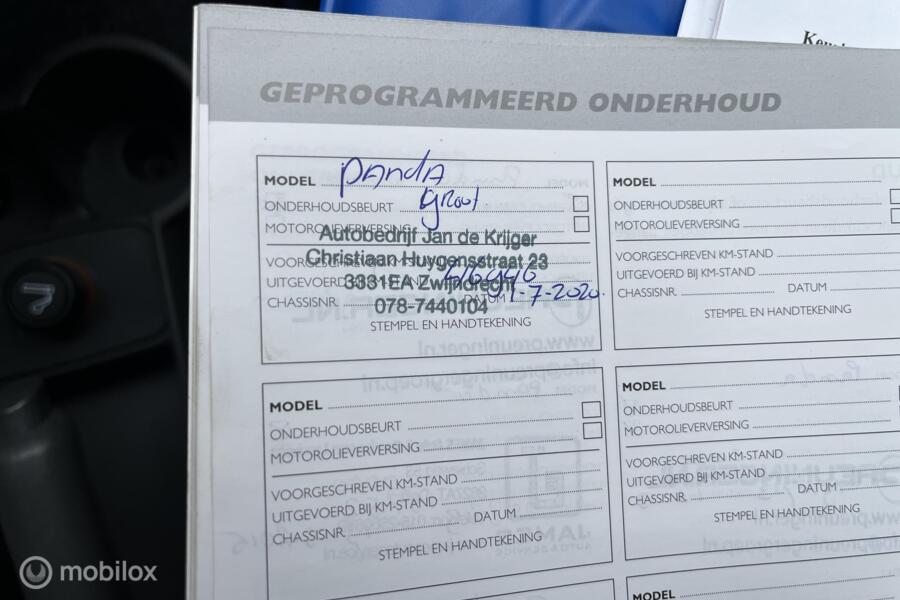 Keu
GEPROGRAMMEERD ONDERHOUD
MODEL Panda
ONDERHOUDSBEURT groot
MOTOROLIEVERVERSING
Autobedrijf Jan de Krijger
Christiaan Huygensstraat 23
3331EA Zwijndrecht
078-7440104
VOORGESCHREVEN KM-STAND
UITGEVOERD BIJ KM-STAND
CHASSISNR. DATUM 1-7-2020.
STEMPEL EN HANDTEKENING
MODEL
ONDERHOUDSBEURT
MOTOROLIEVERVERSING
VOORGESCHREVEN KM-STAND
UITGEVOERD BIJ KM-STAND
CHASSISNR. DATUM
STEMPEL EN HANDTEKENING
MODEL
ONDERHOUDSBEURT
MOTOROLIEVERVERSING
VOORGESCHREVEN KM-STAND
UITGEVOERD BIJ KM-STAND
CHASSISNR. DATUM
STEMPEL EN HANDTEKENING
MODEL
ONDERHOUDSBEURT
MOTOROLIEVERVERSING
VOORGESCHREVEN KM-STAND
UITGEVOERD BIJ KM-STAND
CHASSISNR. DATUM
STEMPEL EN HANDTEKENING
MODEL
MODEL
mobilox